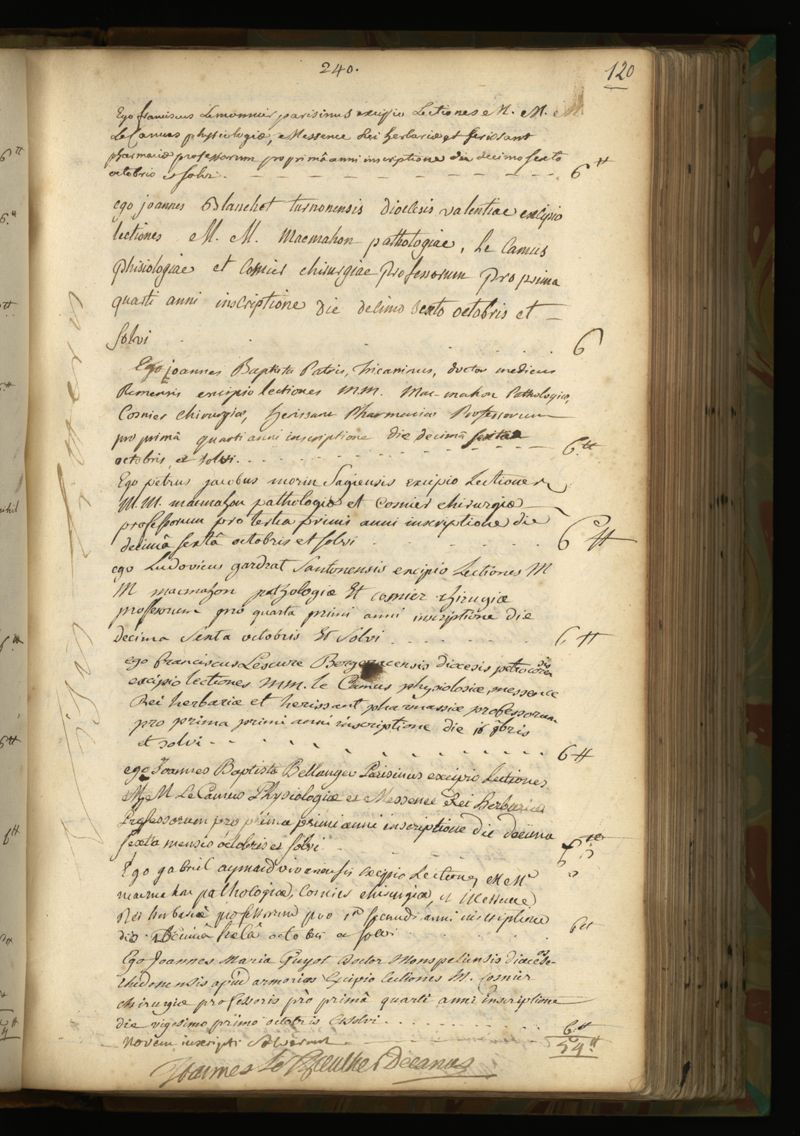 240.
120
Ego franciscus Lemonnier parisinus excipio Lectiones M. M.
Le Camus physiologiæ, Messence Rei herbariæ et herissant
pharmaciæ professorum pro primâ anni inscriptione die decimo sexto
octobris et solvi. 6 ₶
ego joannes Blanchot turnonensis dioecesis valentiae excipio
lectiones M. M. Macmahon pathologiae, Le Camus
phisiologiae et Cosnier chirurgiae professorum pro prima
quarti anni inscriptione die decimo sexto octobris et
solvi 6
Ego joannes Baptista Patris, tricassinus, doctor medicus
Remensis excipio lectiones MM. Mac-mahon Pathologiæ,
Cosnier chirurgiæ, herissant Pharmaciæ Professorum
pro primâ quarti anni inscriptione die decimâ sextâ
octobris, et solvi. 6 ₶
Ego petrus jacobus morin Sagiensis excipio Lectiones
M. M. macmahon pathologiæ et Cosnier chirurgiæ
professorum pro tertia primi anni inscriptione die
decimâ sextâ octobris et solvi 6 ₶
ego Ludovicus gardrat Santonensis excipio Lectiones M
M macmahon pathologiæ Et cosnier chirugiæ
professorum pro quarta primi anni inscriptione die
Decima Sexta octobris Et Solvi 6 ₶
ego franciscus Lescure Bergeracensis diœcesis
excipio lectiones MM. le Camus physiologiæ, messence
Rei herbariæ et herissant pharmassiæ professorum
pro prima primi anni inscriptione die 16 8bris
et solvi 6 ₶
ego Joannes Baptista Bellanger Parisinus excipio Lectiones
M M Le Camus Physiologiæ et Messence Rei Herbariæ
Professorum pro prima primi anni inscriptione die decima
sexta mensis octobris et solvi 6
Ego gabriel aymard excipio Lectiones M M
macmahon pathologiæ, Cosnier chirurgiæ, et Messence
Rei herbariæ professorum pro 1a secundi anni inscriptione
die decimâ sextâ octobris et solvi 6 ₶
Ego Joannes Maria Guyot Doctor Monspeliensis diœcesis
rhedonensis apud armoricos Excipio lectiones M. Cosnier
chirurgiæ professoris pro primâ quarti anni inscriptione
die vigesimo primo octobris et solvi 6 ₶
Novem inscripti solverunt 54 ₶
Joannes Le Thieullier Decanus